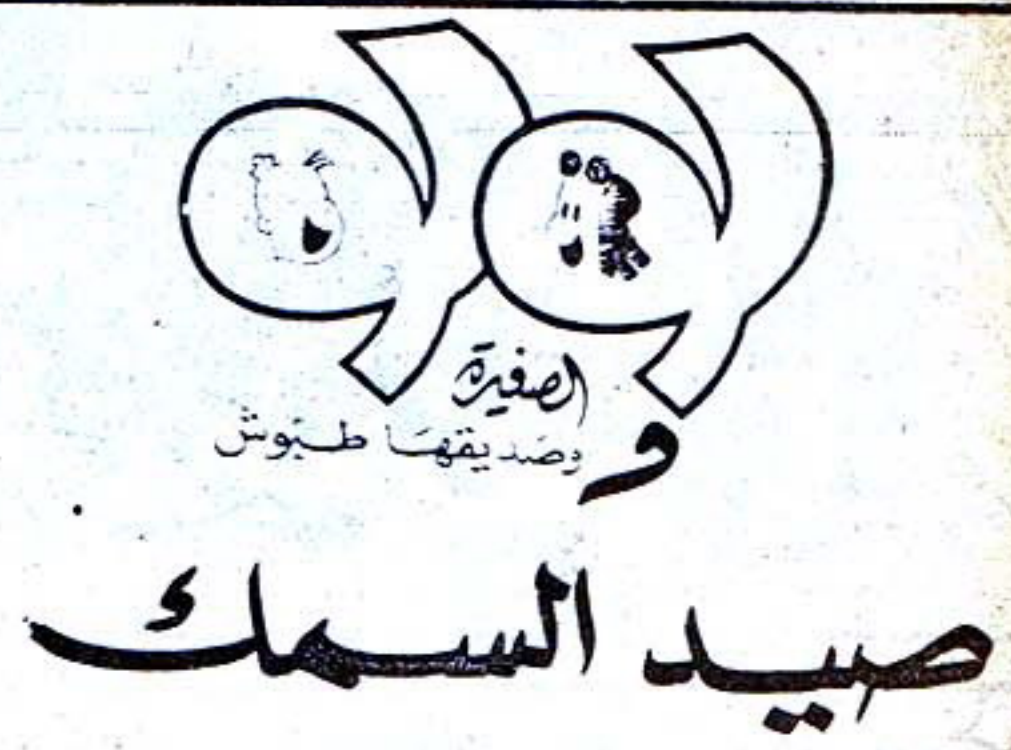 لولو
الصغيرة
وصَديقهَا طبّوش
و
صيد السمك